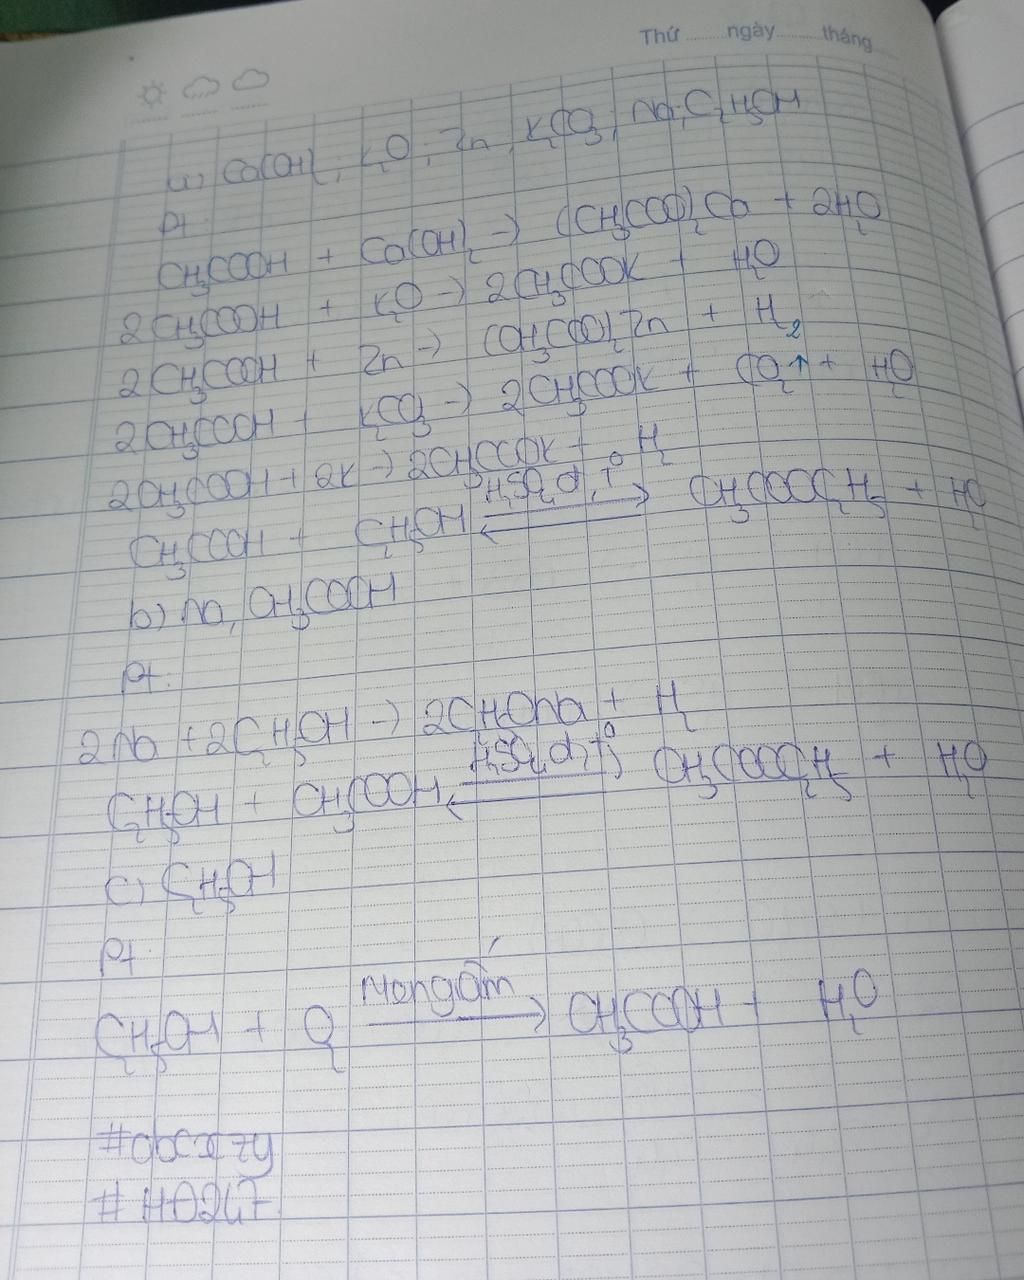 Thứ ........ ngày ......... tháng ......
a) Ca(OH)2, K2O, Zn, K2CO3, Na, C2H5OH
Pt:
CH3COOH + Ca(OH)2 → (CH3COO)2Ca + 2H2O
2CH3COOH + K2O → 2CH3COOK + H2O
2CH3COOH + Zn → (CH3COO)2Zn + H2
2CH3COOH + K2CO3 → 2CH3COOK + CO2↑ + H2O
2CH3COOH + 2K → 2CH3COOK + H2
CH3COOH + C2H5OH ⇌ H2SO4 đ, t° CH3COOC2H5 + H2O
b) Na, CH3COOH
Pt:
2Na + 2C2H5OH → 2CHONa + H2
C2H5OH + CH3COOH ⇌ H2SO4 đ, t° CH3COOC2H5 + H2O
c) C2H5OH
Pt
C2H5OH + O2 Men giấm → CH3COOH + H2O